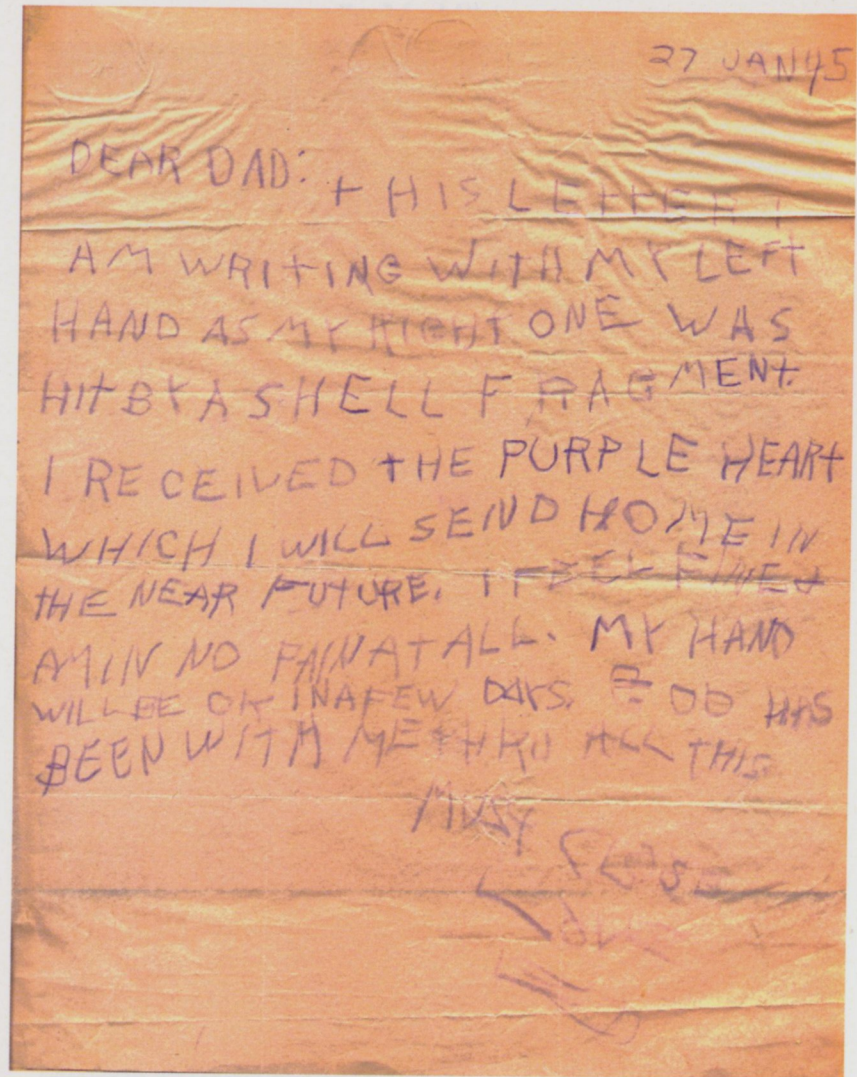 27 JAN 45
DEAR DAD: THIS LETTER I
AM WRITING WITH MY LEFT
HAND AS MY RIGHT ONE WAS
HIT BY A SHELL FRAGMENT.
I RECEIVED THE PURPLE HEART
WHICH I WILL SEND HOME IN
THE NEAR FUTURE. I FEEL FINE &
AM IN NO PAIN AT ALL. MY HAND
WILL BE OK IN A FEW DAYS. GOD HAS
BEEN WITH ME THRU ALL THIS
MUST
CLOSE
LOVE